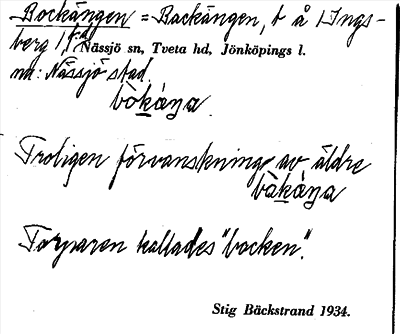 Bockängen = Backängen, t å 1 Ings-
berg 1, f.d. Nässjö sn, Tveta hd, Jönköpings l.
nu: Nässjö stad.
bòkáŋa
Troligen förvanskning av äldre
bàkáŋa
Torparen kallades "bocken".
Stig Bäckstrand 1934.